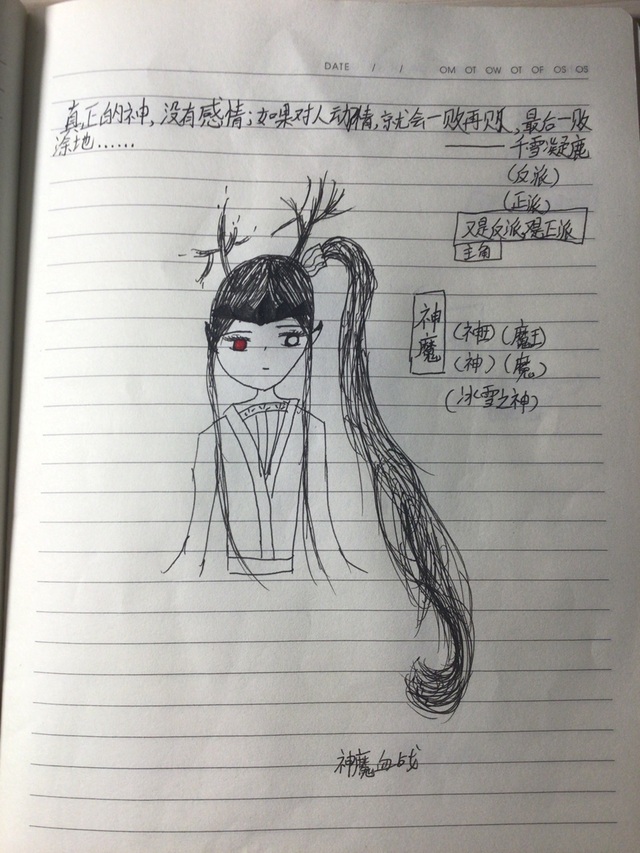 DATE / / OM OT OW OT OF OS OS
真正的神，没有感情；如果对人动情，就会一败再败，最后一败
涂地……
——千雪凝鹿
(反派)
(正派)
又是反派又是正派
主角
神魔
(神王) (魔王)
(神) (魔)
(冰雪之神)
神魔血战